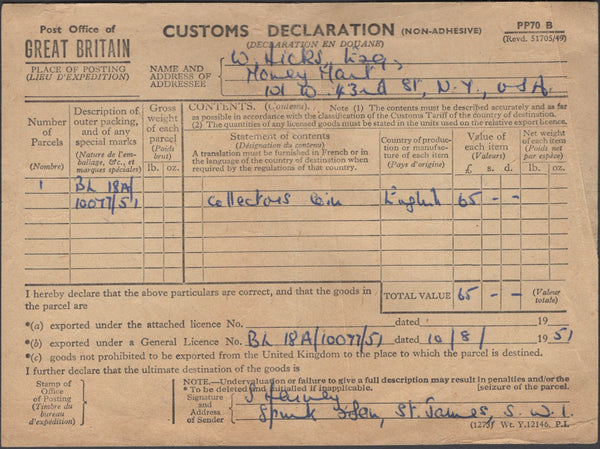 Post Office of
GREAT BRITAIN
PLACE OF POSTING
(LIEU D'EXPÉDITION)
CUSTOMS DECLARATION (NON-ADHESIVE)
(DECLARATION EN DOUANE)
PP70 B
(Revd. 51705/49)
NAME AND
ADDRESS OF
ADDRESSEE
W. Hicks, Esq.,
Money Mart
101 W. 43rd St, N.Y., U.S.A.
Number
of
Parcels
(Nombre)
Description of
outer packing,
and of any
special marks
(Nature de l'em-
ballage, &c., et
marques spéciales)
Gross
weight
of each
parcel
(Poids
brut)
lb. oz.
CONTENTS. (Contenu). Note (1) The contents must be described accurately and as far
as possible in accordance with the classification of the Customs Tariff of the country of destination.
(2) The quantities of licensed goods must be stated in the units used on the relative export licence.
Statement of contents
(Désignation du contenu)
A translation must be furnished in French or in
the language of the country of destination when
required by the regulations of that country.
Country of produc-
tion or manufac-
ture of each item
(Pays d'origine)
Value of
each item
(Valeurs)
£ s. d.
Net weight
of each item
(Poids net
par espèce)
lb. oz.
1 BL 18A/
10077/51 Collectors Coin English 65 - -
I hereby declare that the above particulars are correct, and that the goods in
the parcel are
TOTAL VALUE 65 - - (Valeur
totale)
*(a) exported under the attached licence No. dated 19
*(b) exported under a General Licence No. BL 18A/10077/51 dated 10/8/ 1951
*(c) goods not prohibited to be exported from the United Kingdom to the place to which the parcel is destined.
I further declare that the ultimate destination of the goods is
Stamp of
Office
of Posting
(Timbre du
bureau
d'expédition)
NOTE.—Undervaluation or failure to give a full description may result in penalties and/or the
* To be deleted and initialled if inapplicable. [seizure of the parcel.
Signature
and
Address
of Sender
Spink & Son, St. James, S.W.1.
(1273) Wt. Y.12146. P.I.